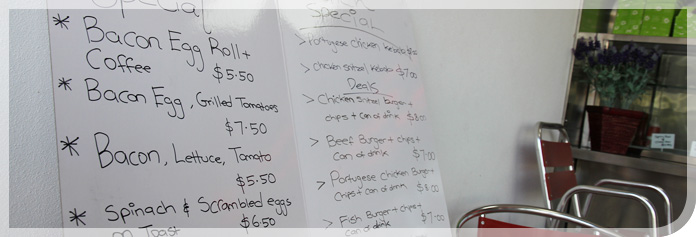 Special
* Bacon Egg Roll +
Coffee $5.50
* Bacon Egg, Grilled Tomatoes
$7.50
* Bacon, Lettuce, Tomato
$5.50
* Spinach & Scrambled eggs
on Toast $6.50
Special
> Portugese Chicken Kebabs
> Chicken Snitzel Kebabs $7.00
Deals
> Chicken Snitzel burger +
chips + can of drink $8.00
> Beef Burger + chips +
Can of drink $7.00
> Portugese Chicken Burger
Chips + can of drink $8.00
> Fish Burger + chips +
can of drink $7.00